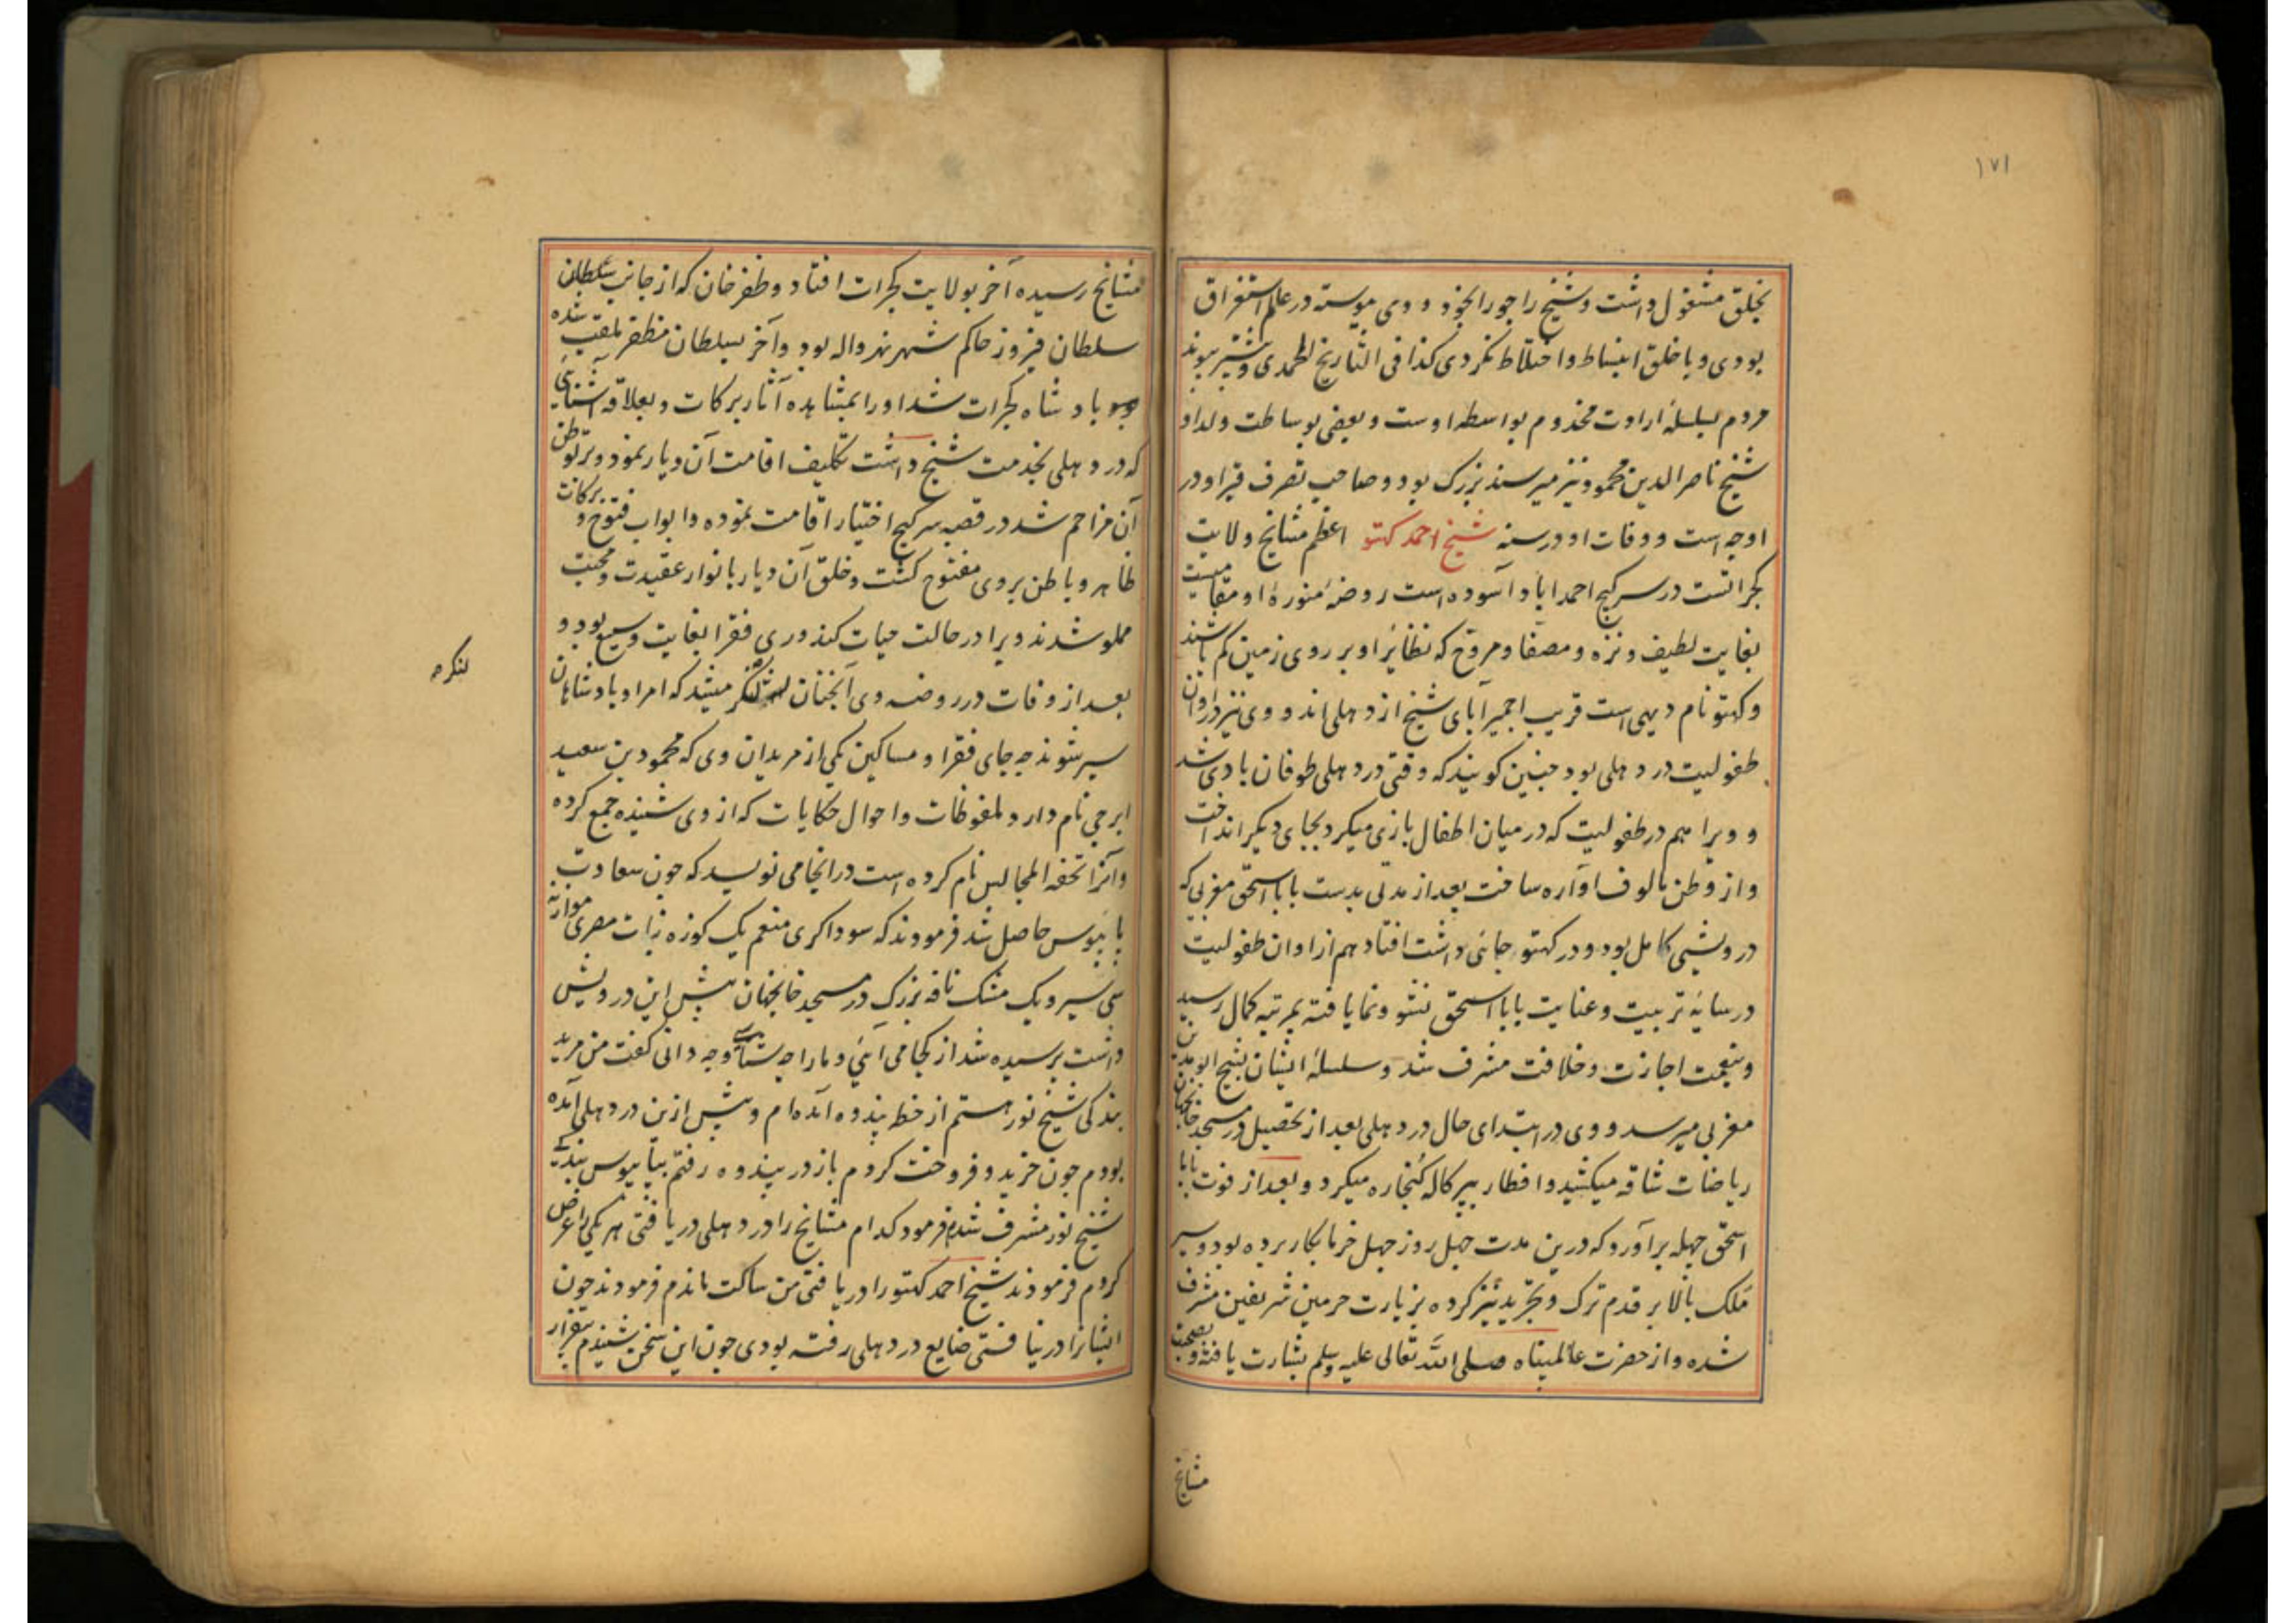 ۱۷۱
بخلق مشغول داشت و شیخ را جورا بخود و وی پیوسته در عالم استغراق
بودی و با خلق انبساط و اختلاط نکردی کذا فی التاریخ المحمدی و بیشتر پیوند
مردم بسلسلهٔ ارادت مخدوم بواسطه اوست و بعضی بوساطت ولد او
شیخ ناصر الدین محمود نیز میرسند بزرک بود و صاحب تصرف قبر او در
اوچه است و وفات او در سنه شیخ احمد کهتو اعظم مشایخ ولایت
کجراتست در سرکیج احمداباد آسوده است روضهٔ منورهٔ او مقامیست
بغایت لطیف و نزه و مصفا و مروح که نظایر او بر روی زمین کم باشند
و کهتو نام دیهی است قریب اجمیر آبای شیخ از دهلی اند و وی نیز در اوان
طفولیت در دهلی بود چنین کویند که وقتی در دهلی طوفان بادی شد
و ویرا هم در طفولیت که در میان اطفال بازی میکرد بجای دیکر انداخت
و از وطن مالوف آواره ساخت بعد از مدتی بدست بابا اسحق مغربی که
درویشی کامل بود و در کهتو جائی داشت افتاد هم از اوان طفولیت
در سایهٔ تربیت و عنایت بابا اسحق نشو و نما یافته بمرتبه کمال رسید
و بنعمت اجازت و خلافت مشرف شد و سلسلهٔ ایشان بشیخ ابو مدین
مغربی میرسد و وی در ابتدای حال در دهلی بعد از تحصیل در مسجد خانجهان
ریاضات شاقه میکشید و افطار ببرکاله کنجاره میکرد و بعد از فوت بابا
اسحق چهله برآورد که درین مدت چهل روز چهل خرما بکار برده بود و سیر
ملک بالا بر قدم ترک و تجرید نیز کرده بزیارت حرمین شریفین مشرف
شده و از حضرت عالمپناه صلی الله تعالی علیه وسلم بشارت یافته و بصحبت
مشایخ
مشایخ رسیده آخر بولایت کجرات افتاد و ظفر خان که از جانب سلطان
سلطان فیروز حاکم شهر نهرواله بود و آخر بسلطان مظفر ملقب شده
باد شاه کجرات شد اورا بمشاهده آثار برکات و بعلاقه آشنایی
که در دهلی بخدمت شیخ داشت تکلیف اقامت آن دیار نمود و بر توطن
آن مزاحم شد در قصبه سرکیج اختیار اقامت نموده و ابواب فتوح و برکات
ظاهر و باطن بروی مفتوح کشت و خلق آن دیار بانوار عقیدت و محبت
مملو شدند ویرا در حالت حیات کندوری فقرا بغایت وسیع بود و
بعد از وفات در روضه وی آنچنان لنگر میشد که امرا و بادشاهان
لنکره
سیر شوند چه جای فقرا و مساکین یکی از مریدان وی که محمود بن سعید
ایرجی نام دارد ملفوظات و احوال حکایات که از وی شنیده جمع کرده
و آنرا تحفه المجالس نام کرده است در انجا می نویسد که چون سعادت
پایبوس حاصل شد فرمودند که سوداکری منعم یک کوزه نبات مصری موازنه
سی سیر و یک مشک نافه بزرک در مسجد خانجهان پیش این درویش
داشت پرسیده شد از کجا می آئی و ما را چه شناسی و چه دانی کفت من مرید
بندکی شیخ نور هستم از خطه پندوه آمده ام و پیش ازین در دهلی آمده
بودم چون خرید و فروخت کردم باز در پندوه رفتم بپایبوس بندکی
شیخ نور مشرف شدم فرمود کدام مشایخ را در دهلی دریافتی هر یکی را عرض
کردم فرمودند شیخ احمد کهتو را دریافتی من ساکت ماندم فرمودند چون
ایشانرا درنیافتی ضایع در دهلی رفته بودی چون این سخن شنیدم بیقرار